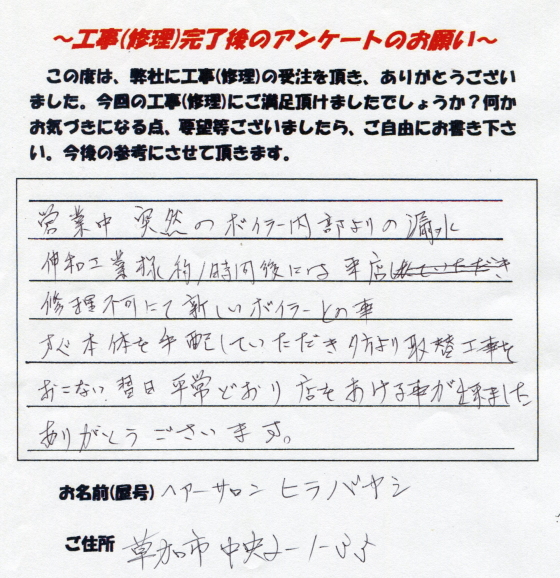 ～工事(修理)完了後のアンケートのお願い～
この度は、弊社に工事(修理)の受注を頂き、ありがとうござい
ました。今回の工事(修理)にご満足頂けましたでしょうか？何か
お気づきになる点、要望等ございましたら、ご自由にお書き下さ
い。今後の参考にさせて頂きます。
営業中 突然のボイラー内部よりの漏水
伸和工業様 約1時間後には来店
修理不可にて新しいボイラーとの事
すぐ本体を手配していただき夕方より取替工事を
おこない翌日平常どおり店をあける事が出来ました
ありがとうございます。
お名前(屋号) ヘアーサロン ヒラバヤシ
ご住所 草加市中央2-1-35